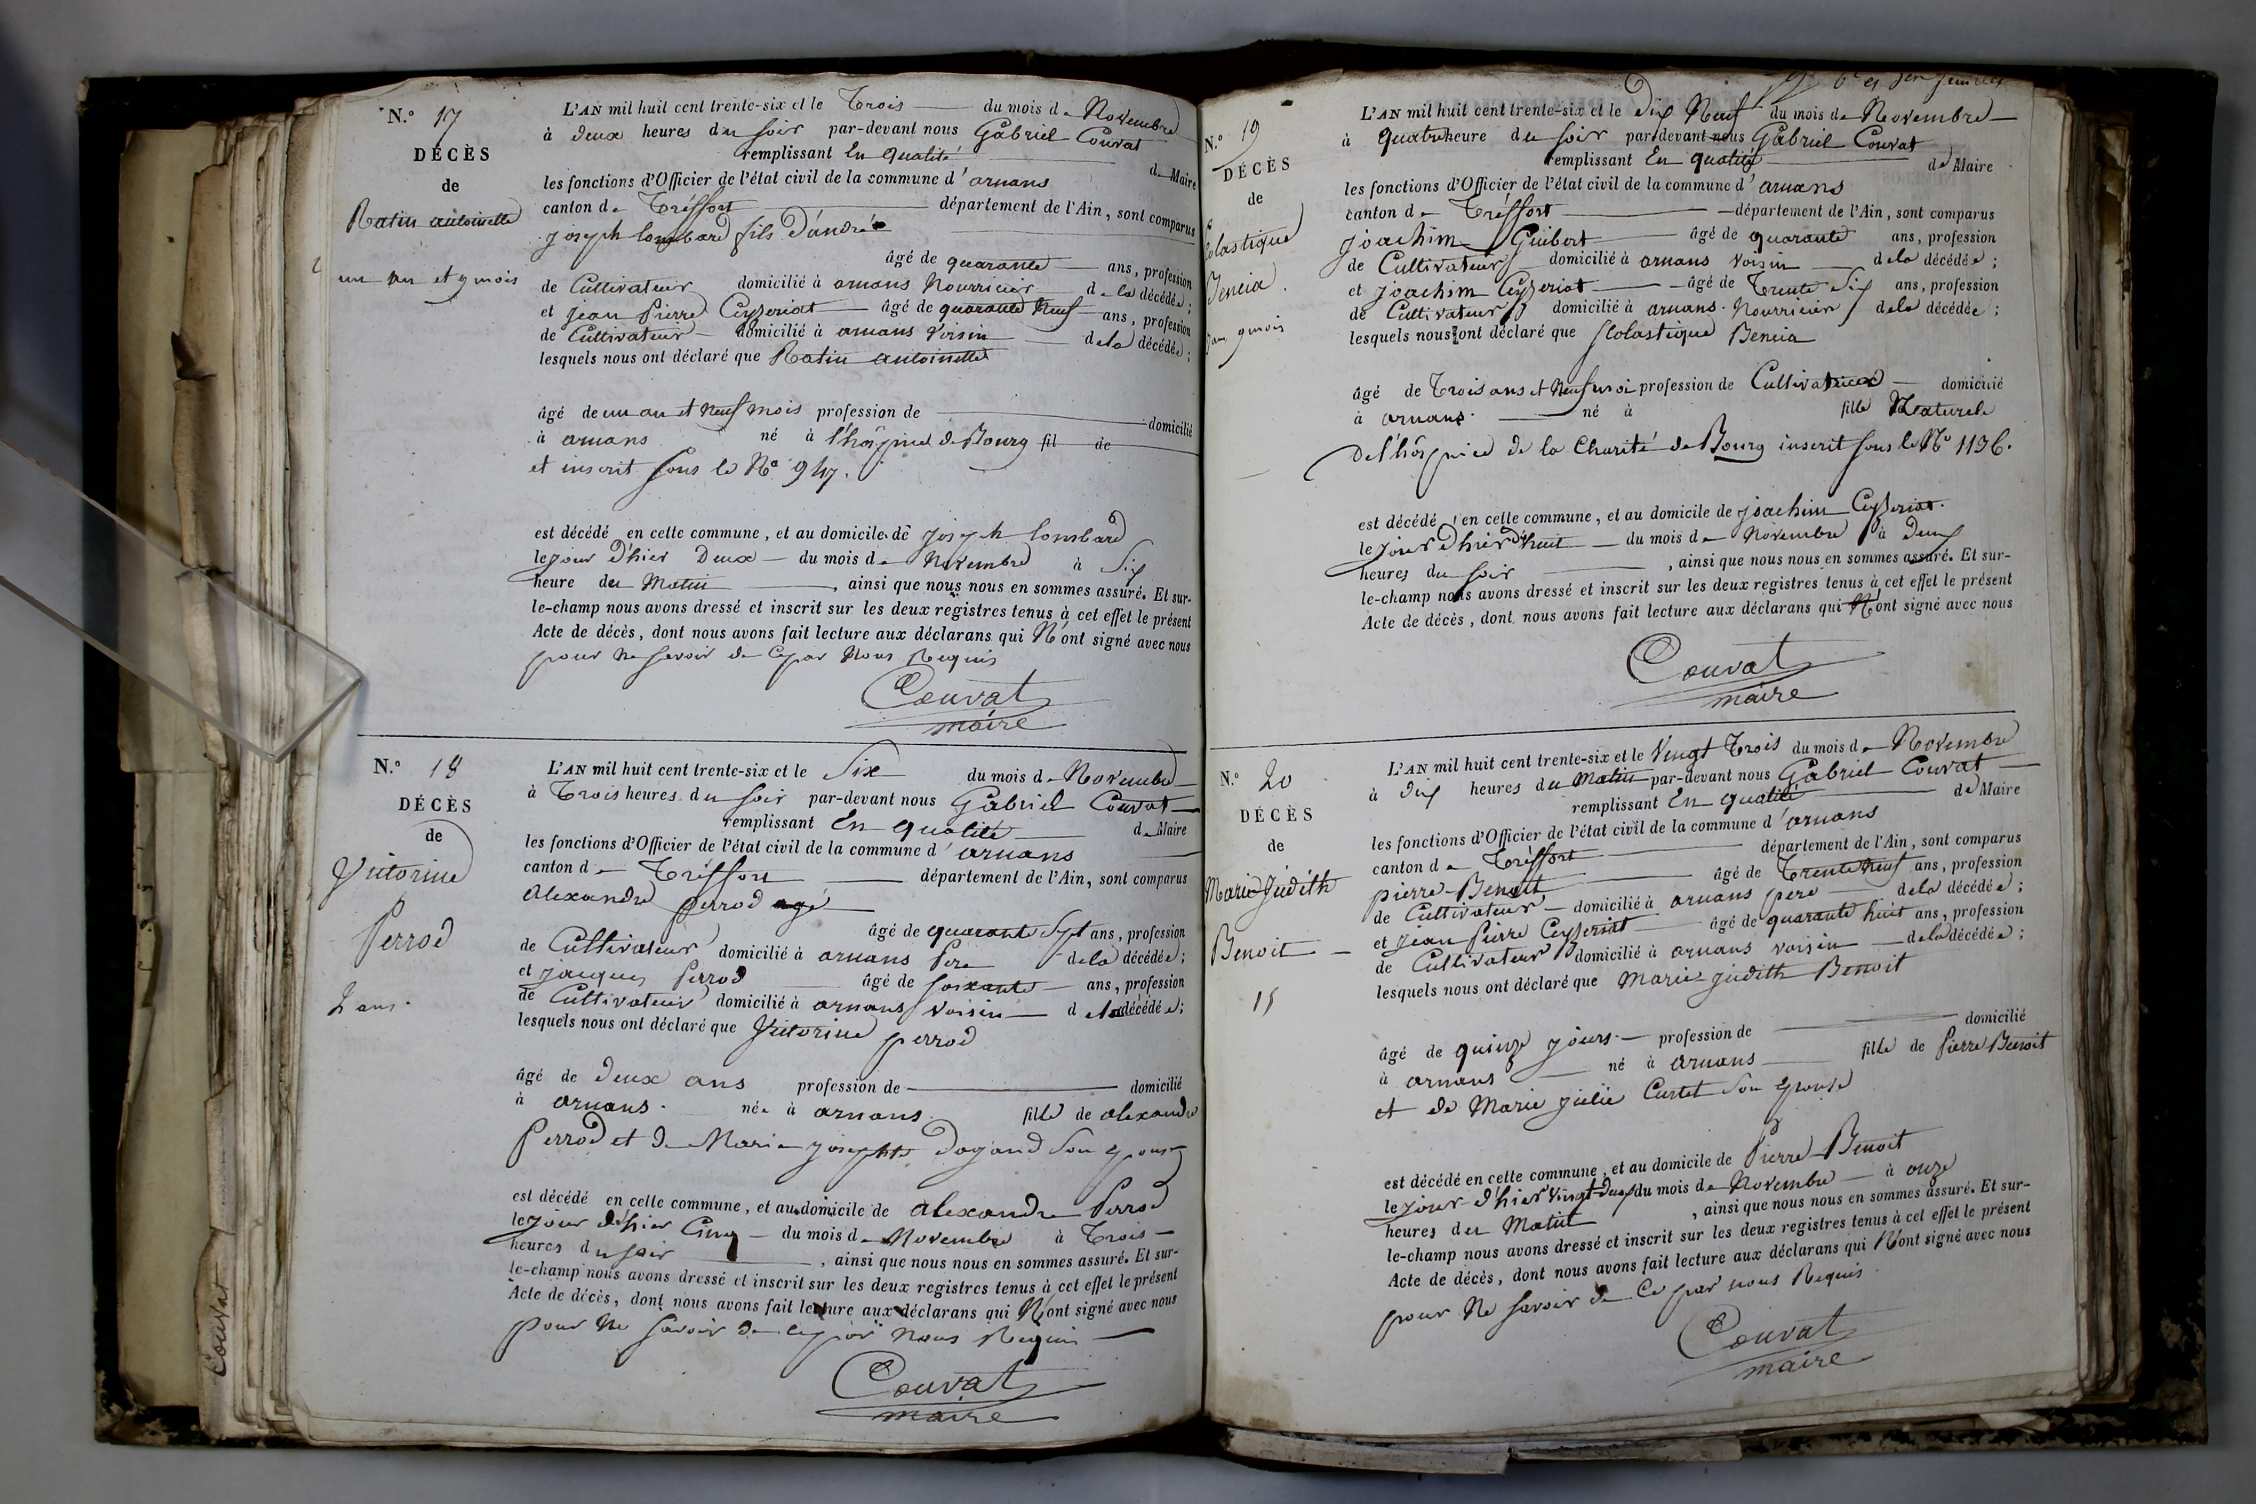 N.° 17
DÉCÈS
de
Ratin antoinette
un an et 9 mois
L'AN mil huit cent trente-six et le Trois du mois de Novembre
à deux heures du soir par-devant nous Gabriel Couvat
remplissant En qualité de Maire
les fonctions d'Officier de l'état civil de la commune d'arnans
canton de Tréffort département de l'Ain, sont comparus
joseph lombard fils d'andré
âgé de quarante ans, profession
de Cultivateur domicilié à arnans Nourricier de la décédée;
et jean Pierre Ceyzeriat âgé de quarante Neuf ans, profession
de Cultivateur domicilié à arnans Voisin de la décédée;
lesquels nous ont déclaré que Ratin antoinette
âgé de un an et Neuf mois profession de domicilié
à arnans né à l'hôspice de Bourg fil de
et inscrit sous le N° 947.
est décédé en cette commune, et au domicile de joseph lombard
le jour d'hier Deux du mois de Novembre à Six
heure du Matin, ainsi que nous nous en sommes assuré. Et sur-
le-champ nous avons dressé et inscrit sur les deux registres tenus à cet effet le présent
Acte de décès, dont nous avons fait lecture aux déclarans qui N'ont signé avec nous
pour Ne savoir de ce par Nous Requis
Couvat
maire
N.° 18
DÉCÈS
de
Victorine
Perrod
2 ans.
L'AN mil huit cent trente-six et le Six du mois de Novembre
à Trois heures du soir par-devant nous Gabriel Couvat
remplissant En qualité de Maire
les fonctions d'Officier de l'état civil de la commune d'arnans
canton de Tréffort département de l'Ain, sont comparus
Alexandre perrod agé
âgé de quarante Sept ans, profession
de Cultivateur domicilié à arnans Pere de la décédée;
et jacques Perrod âgé de soixante ans, profession
de Cultivateur domicilié à arnans Voisin de la décédée;
lesquels nous ont déclaré que Victorine perrod
âgé de deux ans profession de domicilié
à arnans. née à arnans. fille de alexandre
Perrod et de Marie josephte Dagand son epouse
est décédé en cette commune, et au domicile de alexandre Perrod
le jour d'hier Cinq du mois de Novembre à Trois
heures du soir, ainsi que nous nous en sommes assuré. Et sur-
le-champ nous avons dressé et inscrit sur les deux registres tenus à cet effet le présent
Acte de décès, dont nous avons fait lecture aux déclarans qui N'ont signé avec nous
pour Ne savoir de ce par nous Requis
Couvat
maire
N.° 19
DÉCÈS
de
Scolastique
Bencia.
3 ans 9 mois
L'AN mil huit cent trente-six et le Dix Neuf du mois de Novembre
à quatre heure du soir par-devant nous Gabriel Couvat
remplissant En qualité de Maire
les fonctions d'Officier de l'état civil de la commune d'arnans
canton de Tréffort département de l'Ain, sont comparus
joachim Guibert âgé de quarante ans, profession
de Cultivateur domicilié à arnans voisin de la décédée;
et joachim Ceyzeriat âgé de Trente Six ans, profession
de Cultivateur domicilié à arnans. Nourricier de la décédée;
lesquels nous ont déclaré que Scolastique Bencia
âgé de Trois ans et Neuf moi profession de Cultivatrice domicilié
à arnans. né à fille Naturele
De l'hôspice de la Charité de Bourg inscrit sous le N° 1136.
est décédé en cette commune, et au domicile de joachim Ceyzeriat.
le jour d'hier dix huit du mois de Novembre à Deux
heures du soir, ainsi que nous nous en sommes assuré. Et sur-
le-champ nous avons dressé et inscrit sur les deux registres tenus à cet effet le présent
Acte de décès, dont nous avons fait lecture aux déclarans qui N'ont signé avec nous
Couvat
maire
N.° 20
DÉCÈS
de
Marie Judith
Benoit
15
L'AN mil huit cent trente-six et le Vingt Trois du mois de Novembre
à dix heures du Matin par-devant nous Gabriel Couvat
remplissant En qualité de Maire
les fonctions d'Officier de l'état civil de la commune d'arnans
canton de Tréffort département de l'Ain, sont comparus
pierre Benoit âgé de Trente Neuf ans, profession
de Cultivateur domicilié à arnans pere de la décédée;
et jean Pierre Ceyzeriat âgé de quarante huit ans, profession
de Cultivateur domicilié à arnans voisin de la décédée;
lesquels nous ont déclaré que Marie judith Benoit
âgé de quinze jours. profession de domicilié
à arnans né à arnans fille de Pierre Benoit
et de Marie julie Curtet son epouse
est décédé en cette commune, et au domicile de Pierre Benoit
le jour d'hier vingt deux du mois de Novembre à onze
heures du Matin, ainsi que nous nous en sommes assuré. Et sur-
le-champ nous avons dressé et inscrit sur les deux registres tenus à cet effet le présent
Acte de décès, dont nous avons fait lecture aux déclarans qui N'ont signé avec nous
pour Ne savoir de Ce par nous Requis
Couvat
maire
Couvat